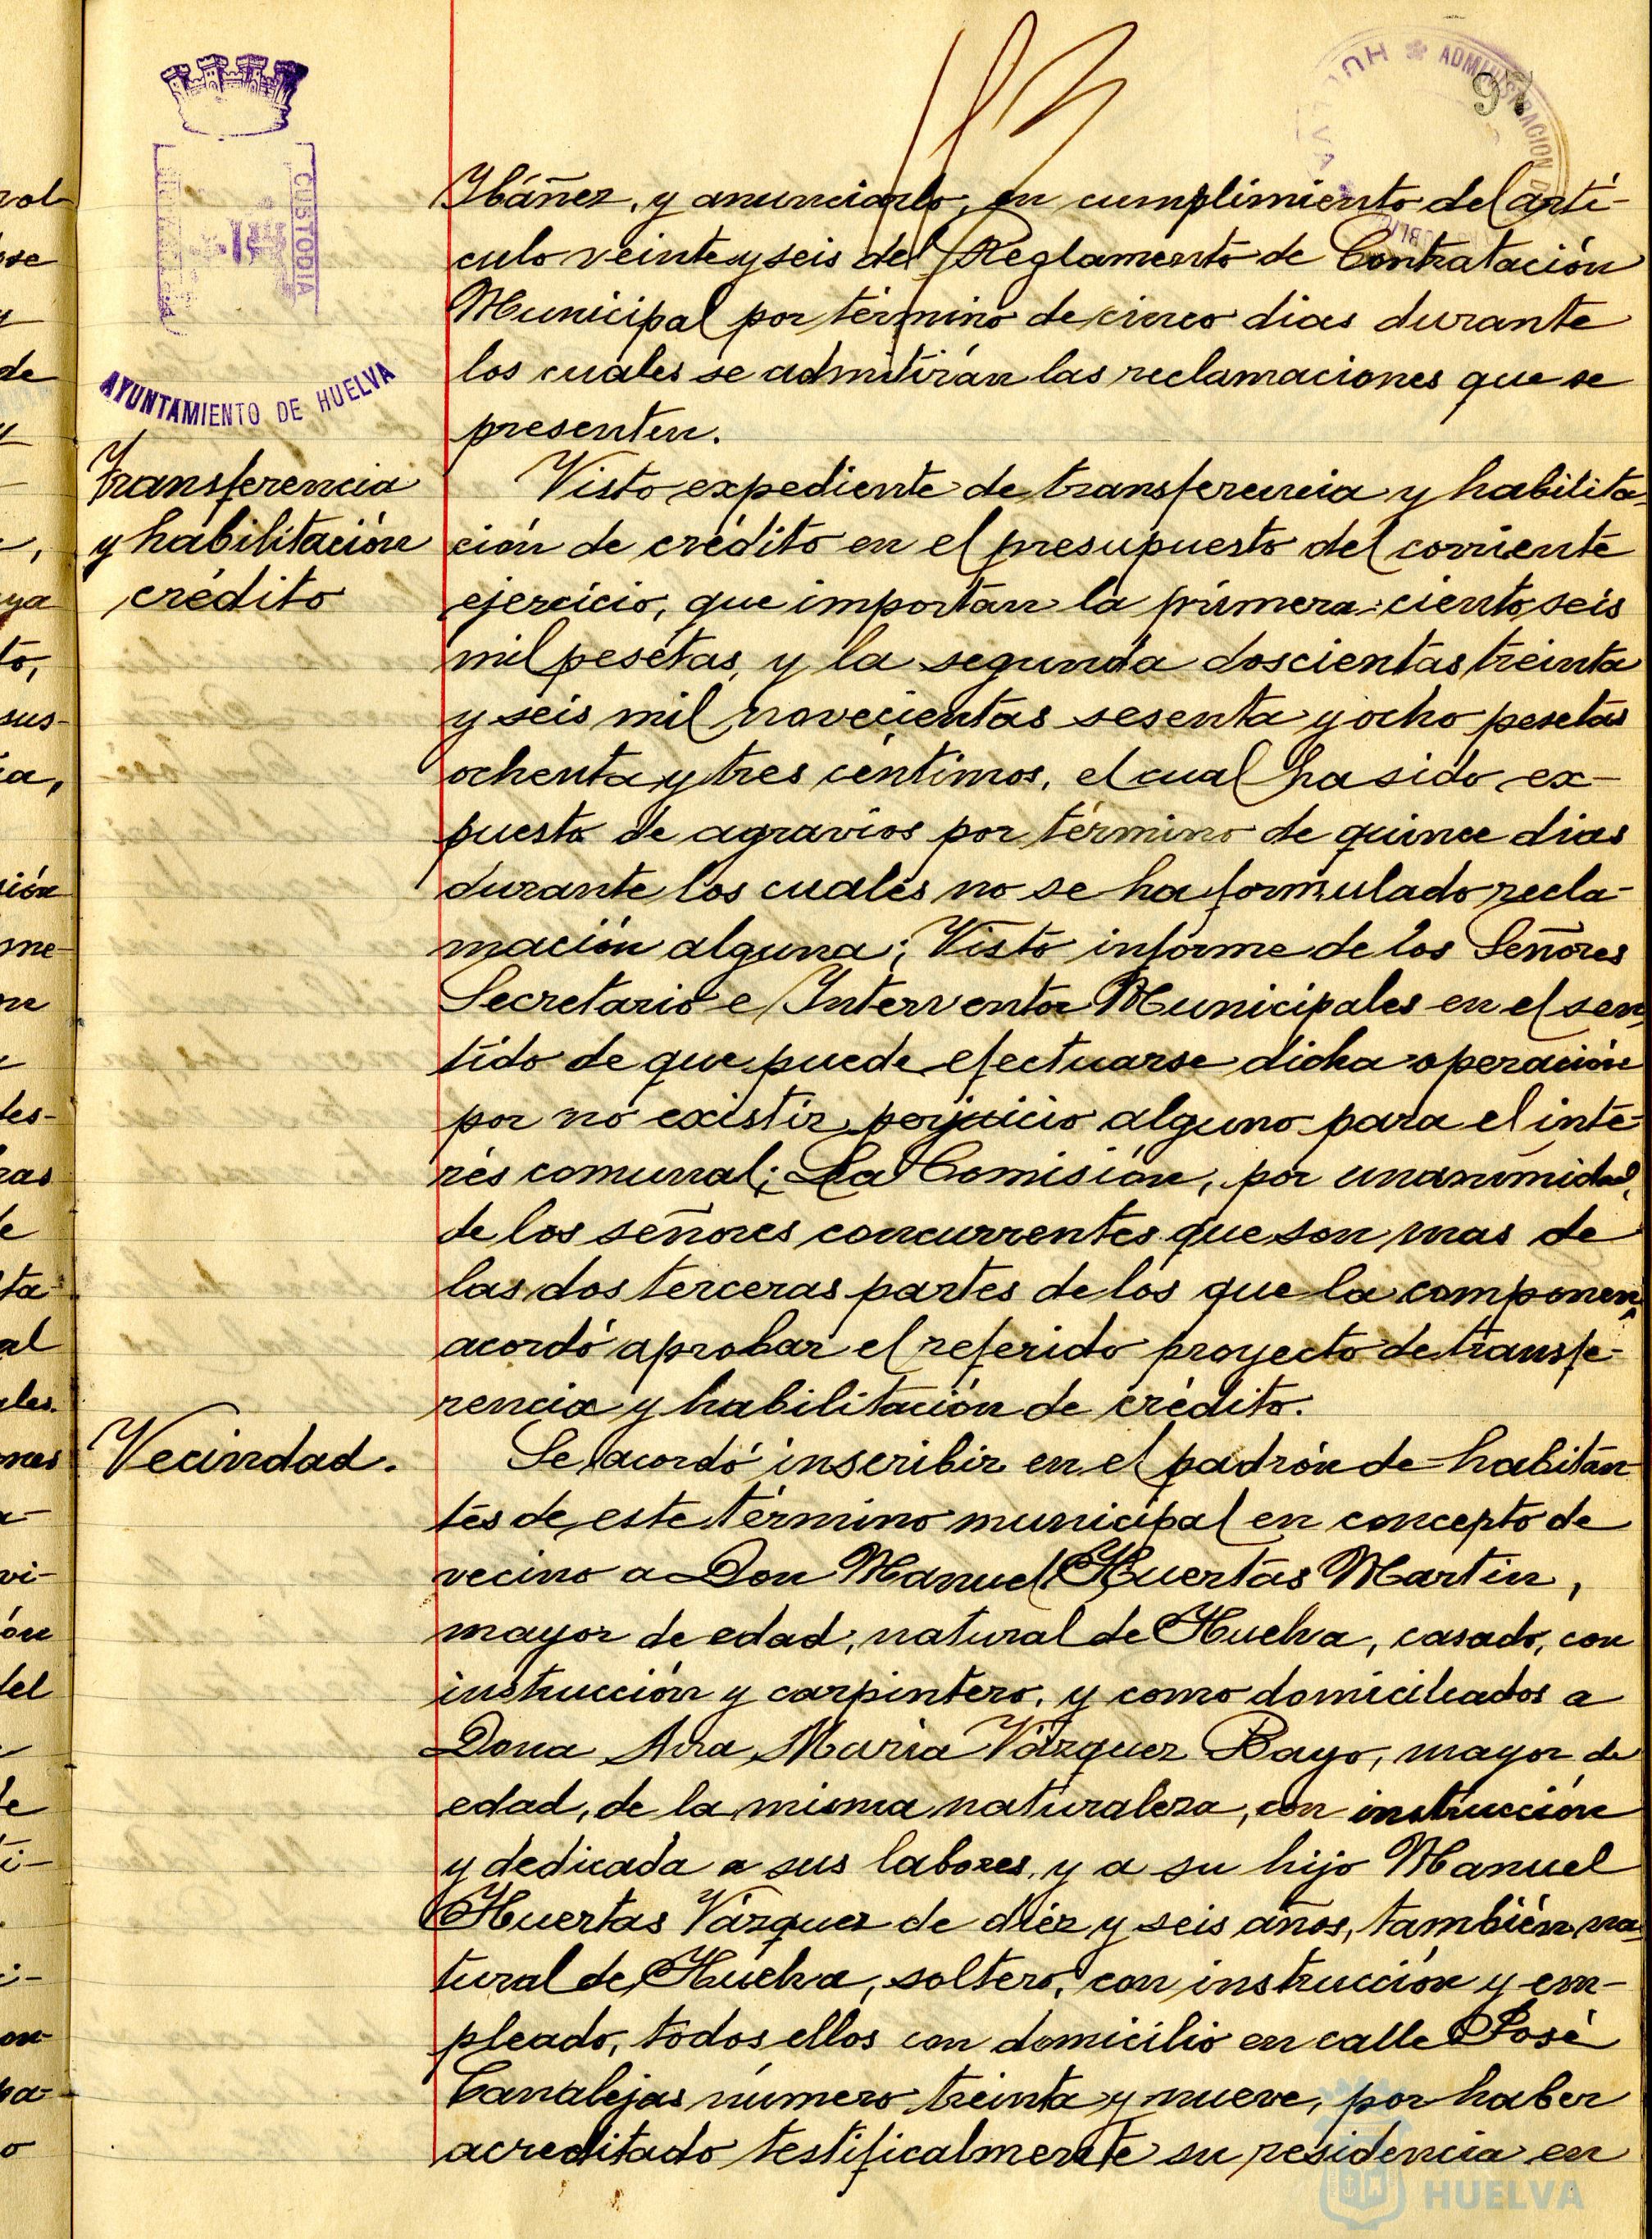 97
CUSTODIA
AYUNTAMIENTO DE HUELVA
HUELVA * ADMINISTRACION DE
Ibáñez, y anunciarlo, en cumplimiento del artí-
culo veinte y seis del Reglamento de Contratación
Municipal por término de cinco dias durante
los cuales se admitirán las reclamaciones que se
presenten.
Transferencia
y habilitación
crédito
Visto expediente de transferencia y habilita-
ción de crédito en el presupuesto del corriente
ejercicio, que importan la primera ciento seis
mil pesetas, y la segunda doscientas treinta
y seis mil novecientas sesenta y ocho pesetas
ochenta y tres céntimos, el cual ha sido ex-
puesto de agravios por término de quince dias
durante los cuales no se ha formulado recla-
mación alguna; Visto informe de los Señores
Secretario e Interventor Municipales en el sen-
tido de que puede efectuarse dicha operación
por no existir perjuicio alguno para el inte-
rés comunal; La Comisión, por unanimidad,
de los señores concurrentes que son mas de
las dos terceras partes de los que la componen,
acordó aprobar el referido proyecto de transfe-
rencia y habilitación de crédito.
Vecindad.
Se acordó inscribir en el padrón de habitan-
tes de este término municipal en concepto de
vecino a Don Manuel Huertas Martin,
mayor de edad, natural de Huelva, casado, con
instrucción y carpintero, y como domiciliados a
Dona Ana Maria Vázquez Bayo, mayor de
edad, de la misma naturaleza, con instrucción
y dedicada a sus labores, y a su hijo Manuel
Huertas Vázquez de diéz y seis años, también na-
tural de Huelva, soltero, con instrucción y em-
pleado, todos ellos con domicilio en calle José
Canalejas número treinta y nueve, por haber
acreditado testificalmente su residencia en
HUELVA